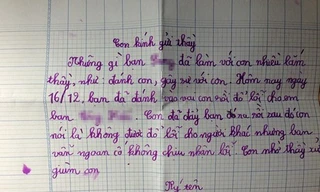 Con kính gửi thầy
Những gì bạn đã làm với con nhiều lắm
thầy, như: đánh con, gây sự với con. Hôm nay ngày
16/12, bạn đã đánh vai con rồi đổ lỗi cho em
bạn. Con đã dạy bạn rồi sau đó con
nói là không được đổ lỗi cho người khác nhưng bạn
vẫn ngoan cố không chịu nhận lỗi. Con nhờ thầy xử
giùm con
Ký tên